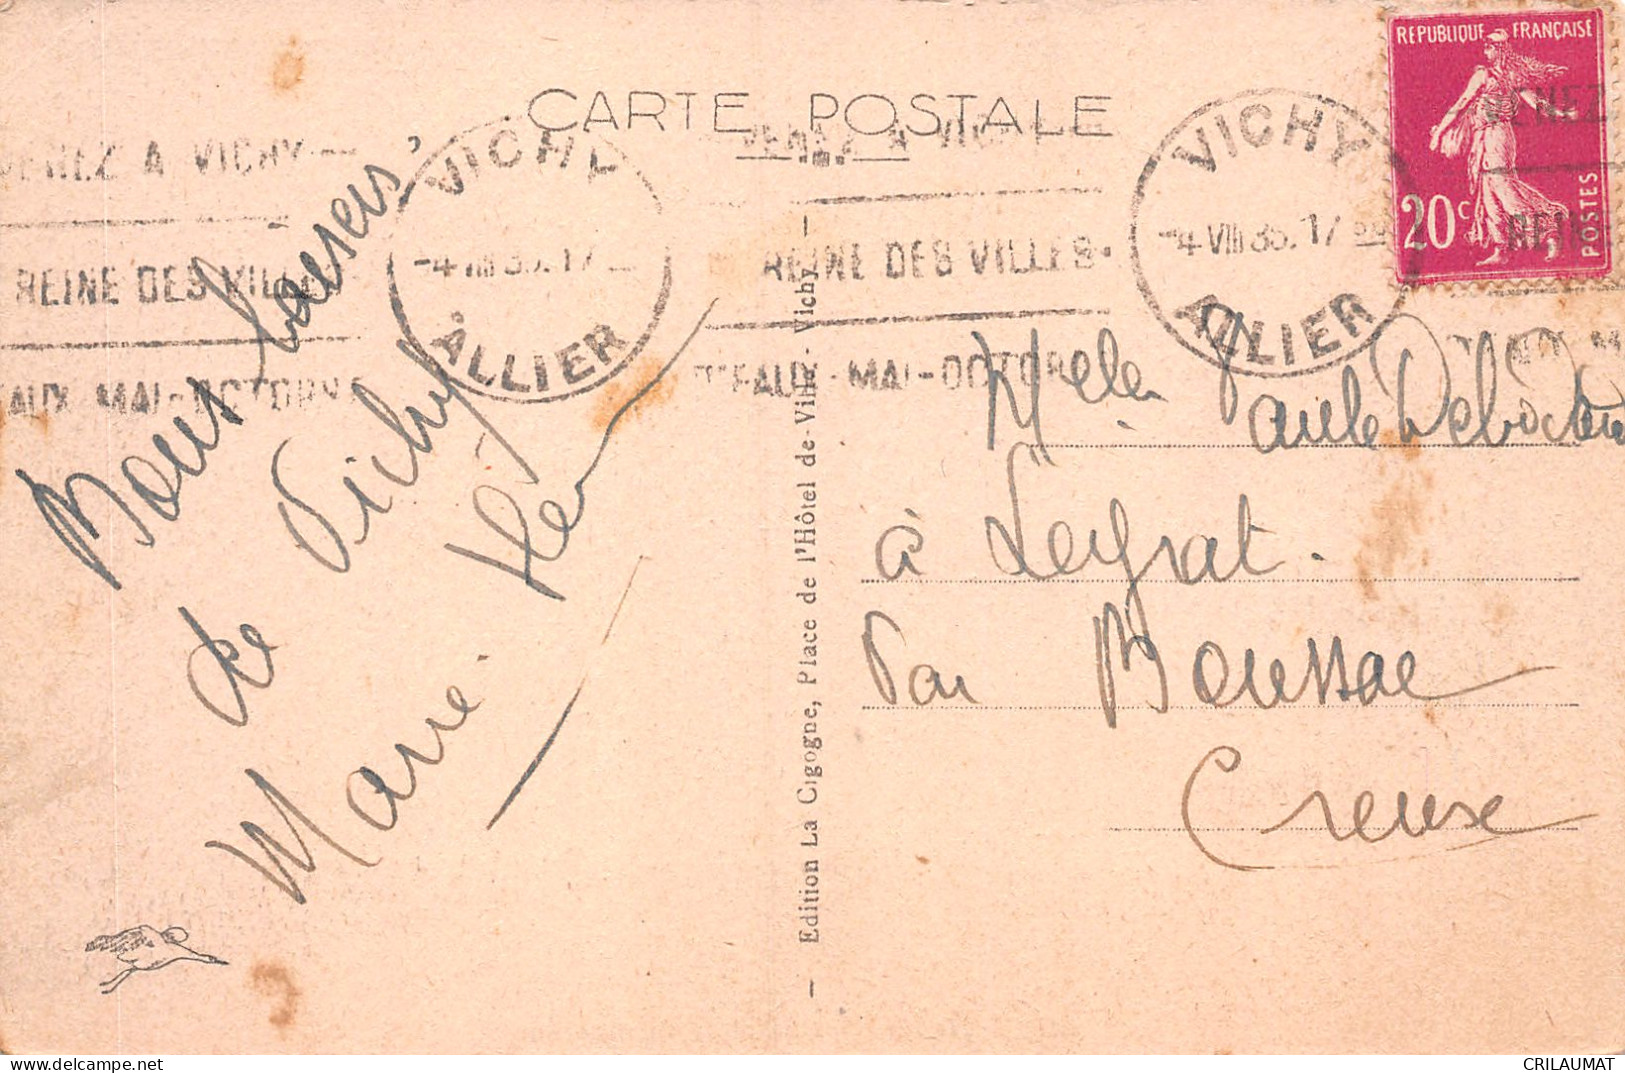 CARTE POSTALE
REPUBLIQUE FRANÇAISE
20c
POSTES
VENEZ A VICHY
REINE DES VILLES
EAUX MAI-OCTOBRE
VICHY
-4 VIII 35. 17
ALLIER
VENEZ A VICHY
REINE DES VILLES
D'EAUX - MAI-OCTOBRE
VICHY
-4 VIII 35. 17
ALLIER
VENEZ
REINE
Bons baisers
de Vichy
Marie
Melle Paule
à Leyrat.
Par Boussac
Creuse
— Edition La Cigogne, Place de l'Hôtel de-Ville - Vichy —
CRILAUMAT